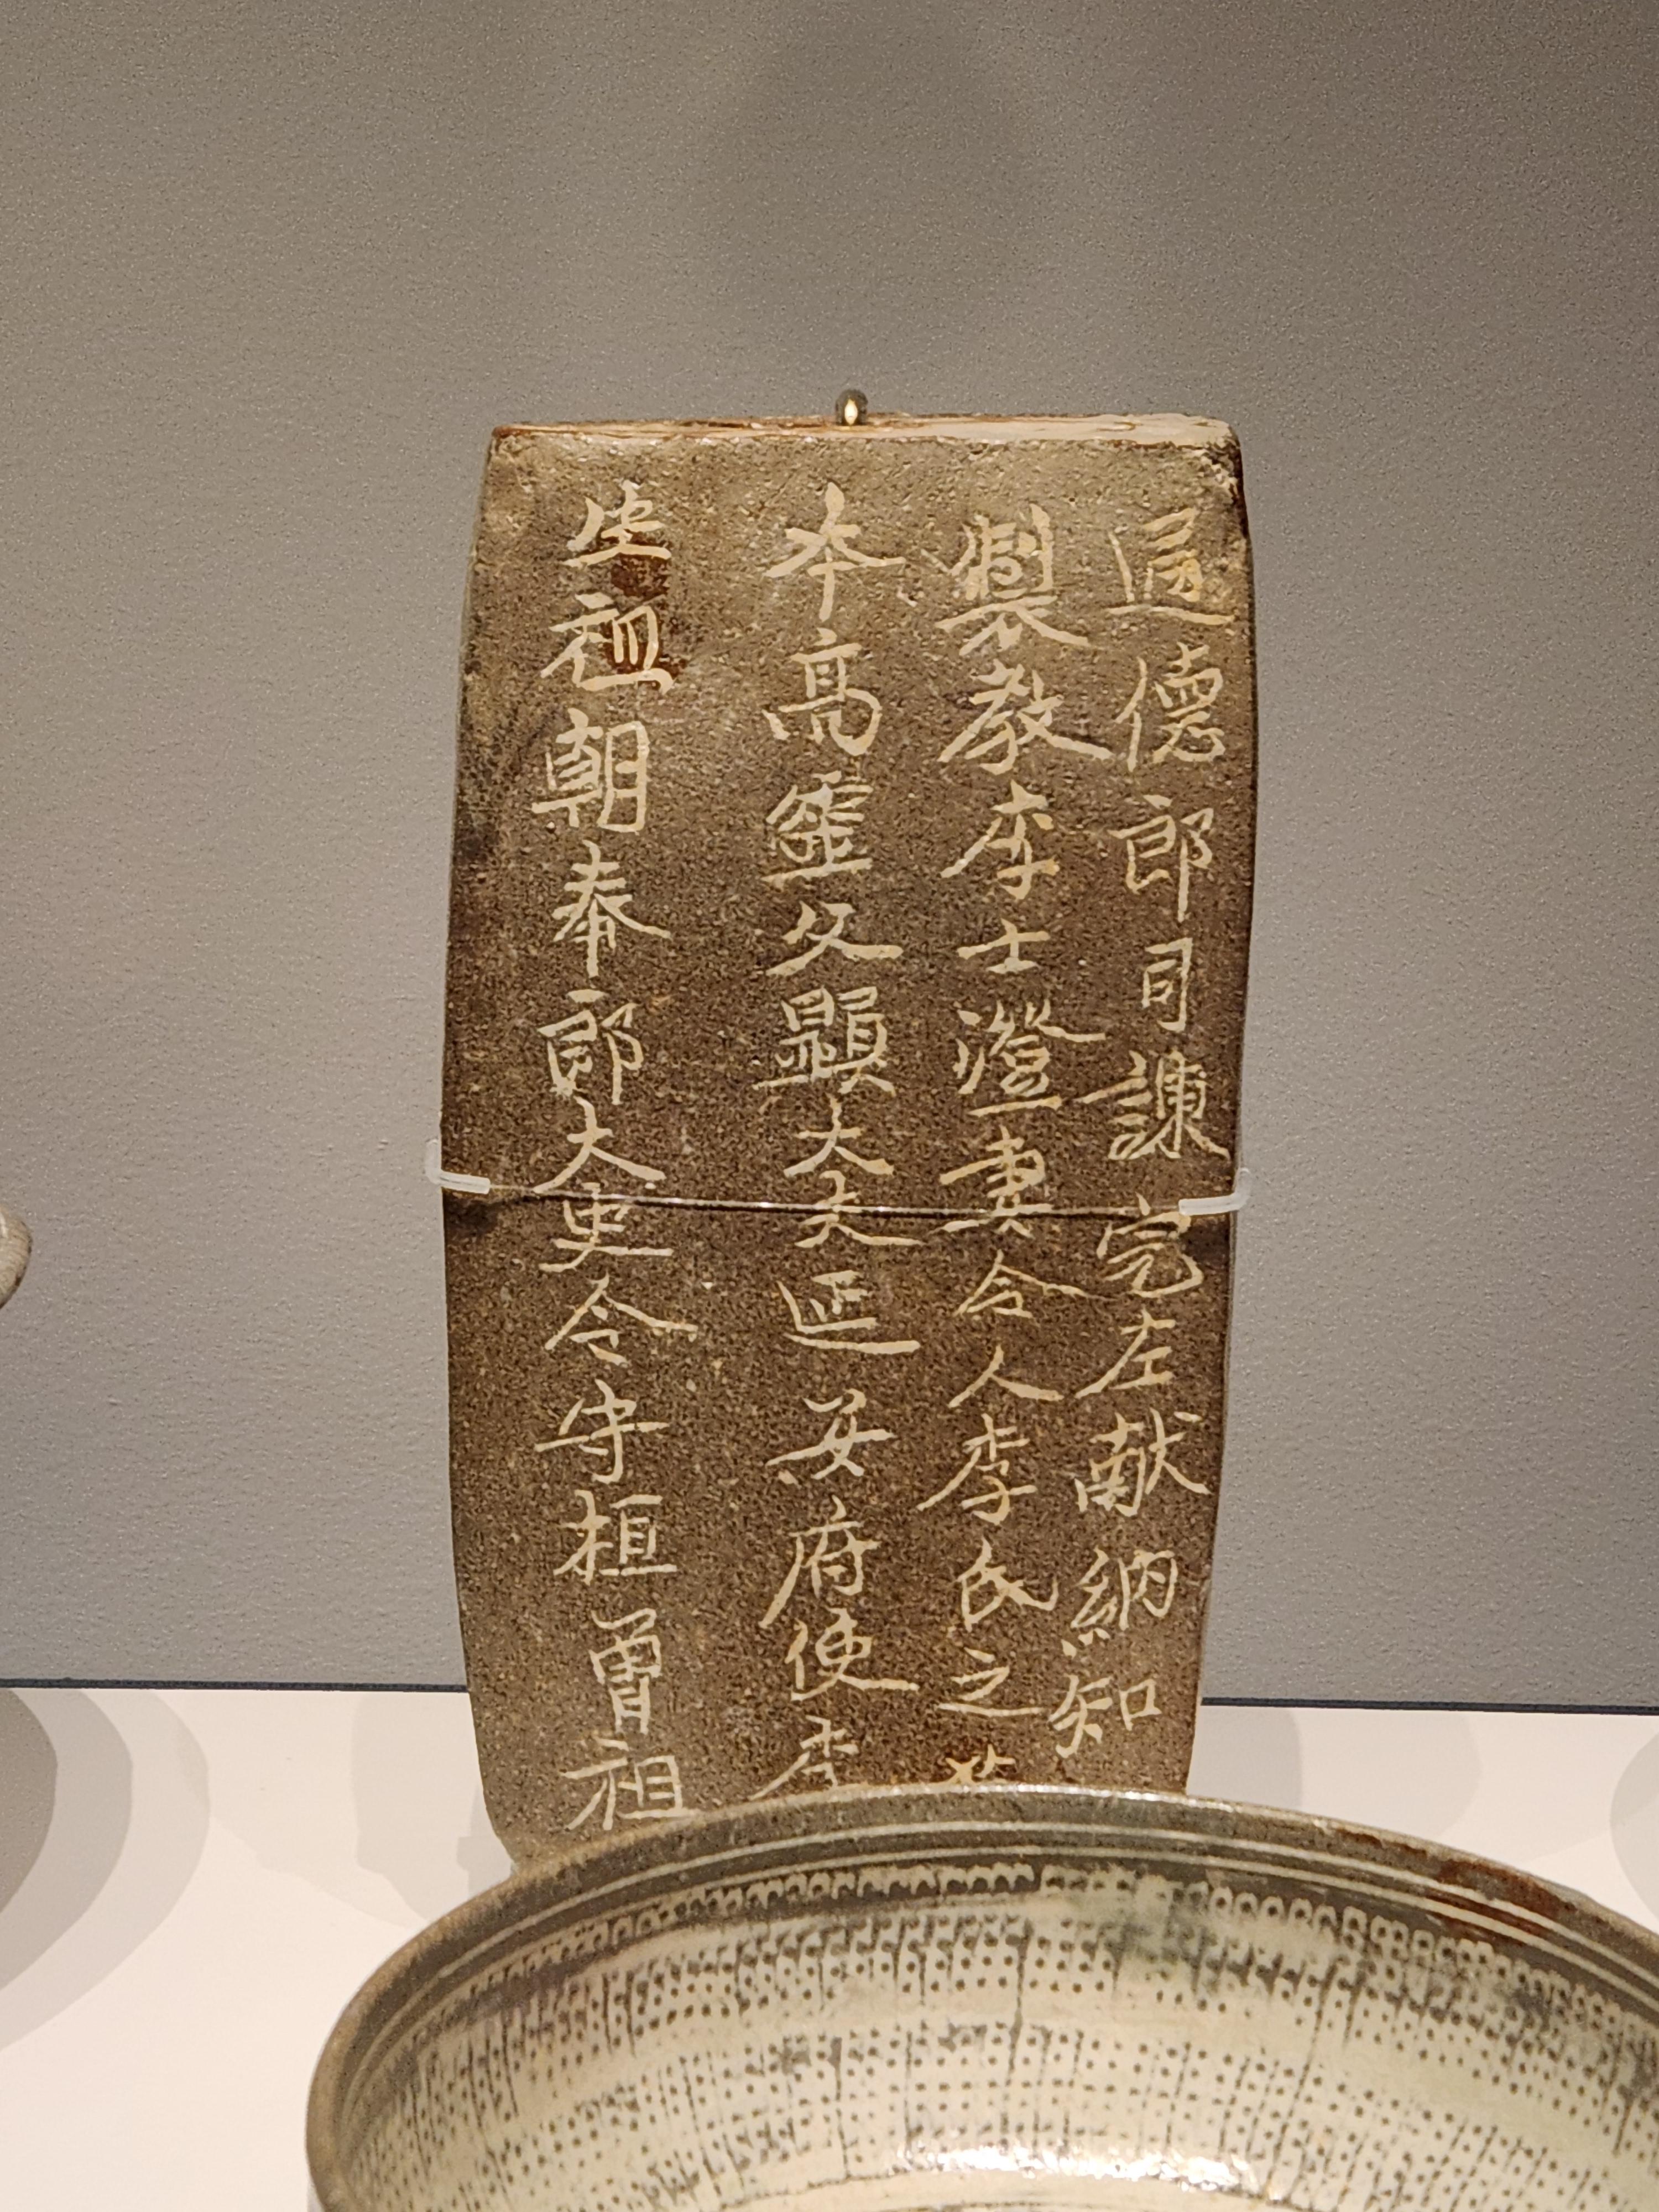 通德郎司諫完左献納知
製教李士澄妻令人李氏之
本高霊父顯大夫延安府使李
生祖朝奉郎大更令守桓曾祖